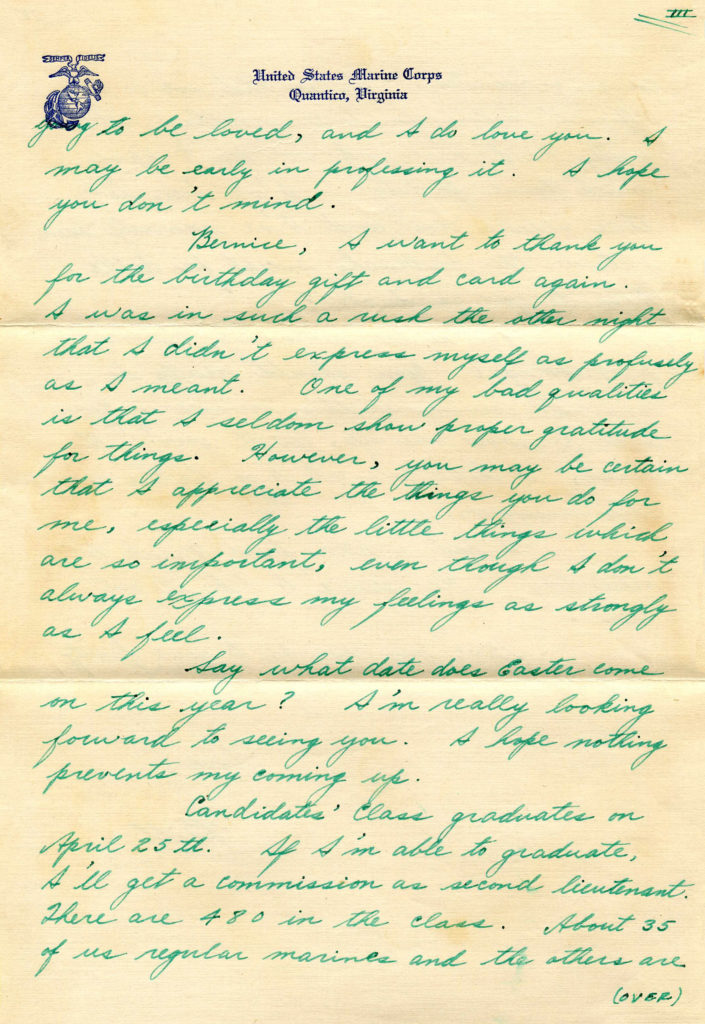 III
United States Marine Corps
Quantico, Virginia
going to be loved, and I do love you. I
may be early in professing it. I hope
you don't mind.
Bernice, I want to thank you
for the birthday gift and card again.
I was in such a rush the other night
that I didn't express myself as profusely
as I meant. One of my bad qualities
is that I seldom show proper gratitude
for things. However, you may be certain
that I appreciate the things you do for
me, especially the little things which
are so important, even though I don't
always express my feelings as strongly
as I feel.
Say what date does Easter come
on this year? I'm really looking
forward to seeing you. I hope nothing
prevents my coming up.
Candidates' Class graduates on
April 25th. If I'm able to graduate,
I'll get a commission as second lieutenant.
There are 480 in the class. About 35
of us regular marines and the others are
(OVER)